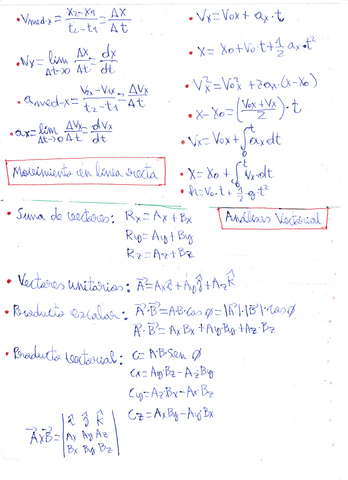 • Vmed-x = x₂-x₁ / t₂-t₁ = Δx / Δt
• Vx = lim Δt→0 Δx / Δt = dx / dt
• amed-x = V₂x-V₁x / t₂-t₁ = ΔVx / Δt
• ax = lim Δt→0 ΔVx / Δt = dVx / dt
Movimiento en línea recta
• Vx = V₀x + ax · t
• X = X₀ + V₀·t + 1/2 ax · t²
• Vx² = V₀x² + 2ax · (X-X₀)
• X-X₀ = (V₀x + Vx / 2) · t
• Vx = V₀x + ∫₀ᵗ ax dt
• X = X₀ + ∫₀ᵗ Vx dt
• h = V₀·t + 1/2 g t²
Análisis Vectorial
• Suma de vectores: Rx = Ax + Bx
Ry = Ay + By
Rz = Az + Bz
• Vectores unitarios: A⃗ = Ax î + Ay ĵ + Az k̂
• Producto escalar: A⃗·B⃗ = A·B·cos ϕ = |A⃗|·|B⃗|·cos ϕ
A⃗·B⃗ = Ax Bx + Ay By + Az·Bz
• Producto vectorial: C = A·B Sen ϕ
Cx = Ay Bz - Az By
Cy = Az Bx - Ax Bz
Cz = Ax By - Ay Bx
A⃗xB⃗ = | î ĵ k̂ |
| Ax Ay Az |
| Bx By Bz |